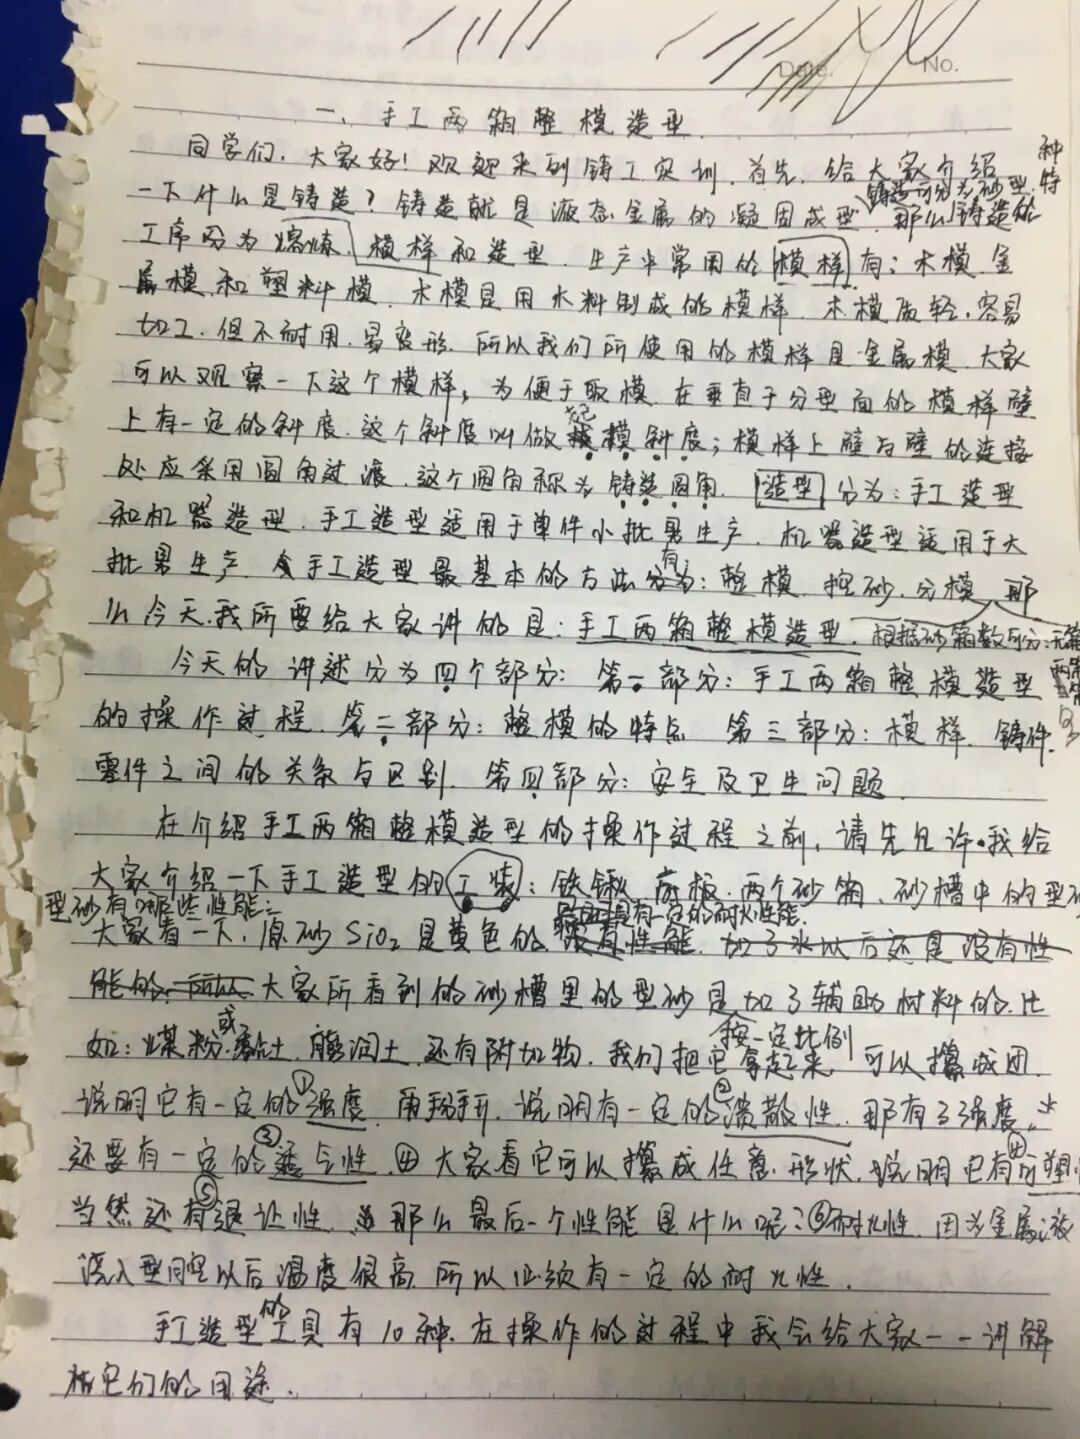 Date. No.
一、手工两箱整模造型
同学们，大家好！欢迎来到铸工实训，首先，给大家介绍
一下什么是铸造？铸造就是液态金属的凝固成型，铸造可分为砂型、特种 那么铸造的
工序分为熔炼、模样和造型，生产中常用的模样有：木模、金
属模和塑料模，木模是用木料制成的模样，木模质轻，容易
加工，但不耐用，易变形，所以我们所使用的模样是金属模，大家
可以观察一下这个模样，为便于取模，在垂直于分型面的模样壁
上有一定的斜度，这个斜度叫做起模斜度；模样上壁与壁的连接
处应采用圆角过渡，这个圆角称为铸造圆角，造型分为：手工造型
和机器造型，手工造型适用于单件小批量生产，机器造型适用于大
批量生产，手工造型最基本的方法有：整模、挖砂、分模，那
么今天，我所要给大家讲的是：手工两箱整模造型，根据砂箱数可分：无箱 两箱
今天的讲述分为四个部分：第一部分：手工两箱整模造型
的操作过程，第二部分：整模的特点 第三部分：模样、铸件、
零件之间的关系与区别，第四部分：安全及卫生问题。
在介绍手工两箱整模造型的操作过程之前，请先允许我给
大家介绍一下手工造型的工装：铁锹、底板、两个砂箱、砂槽中的型砂
型砂有哪些性能：
大家看一下，原砂SiO₂是黄色的 具有一定的耐火性能 没有性能，加了水以后还是没有性
能的，所以大家所看到的砂槽里的型砂是加了辅助材料的，比
如：煤粉、或黏土、膨润土，还有附加物，我们把它按一定比例拿起来，可以攥成团，
说明它有一定的①强度，用手掰开，说明有一定的②溃散性，那有了强度，
还要有一定的③透气性，④大家看它可以攥成任意形状，说明它有④可塑性
当然还有⑤退让性，那么最后一个性能是什么呢？⑥耐火性，因为金属液
浇入型腔以后温度很高，所以必须有一定的耐火性。
手工造型的工具有10种，在操作的过程中我会给大家一一讲解
它们的用途。